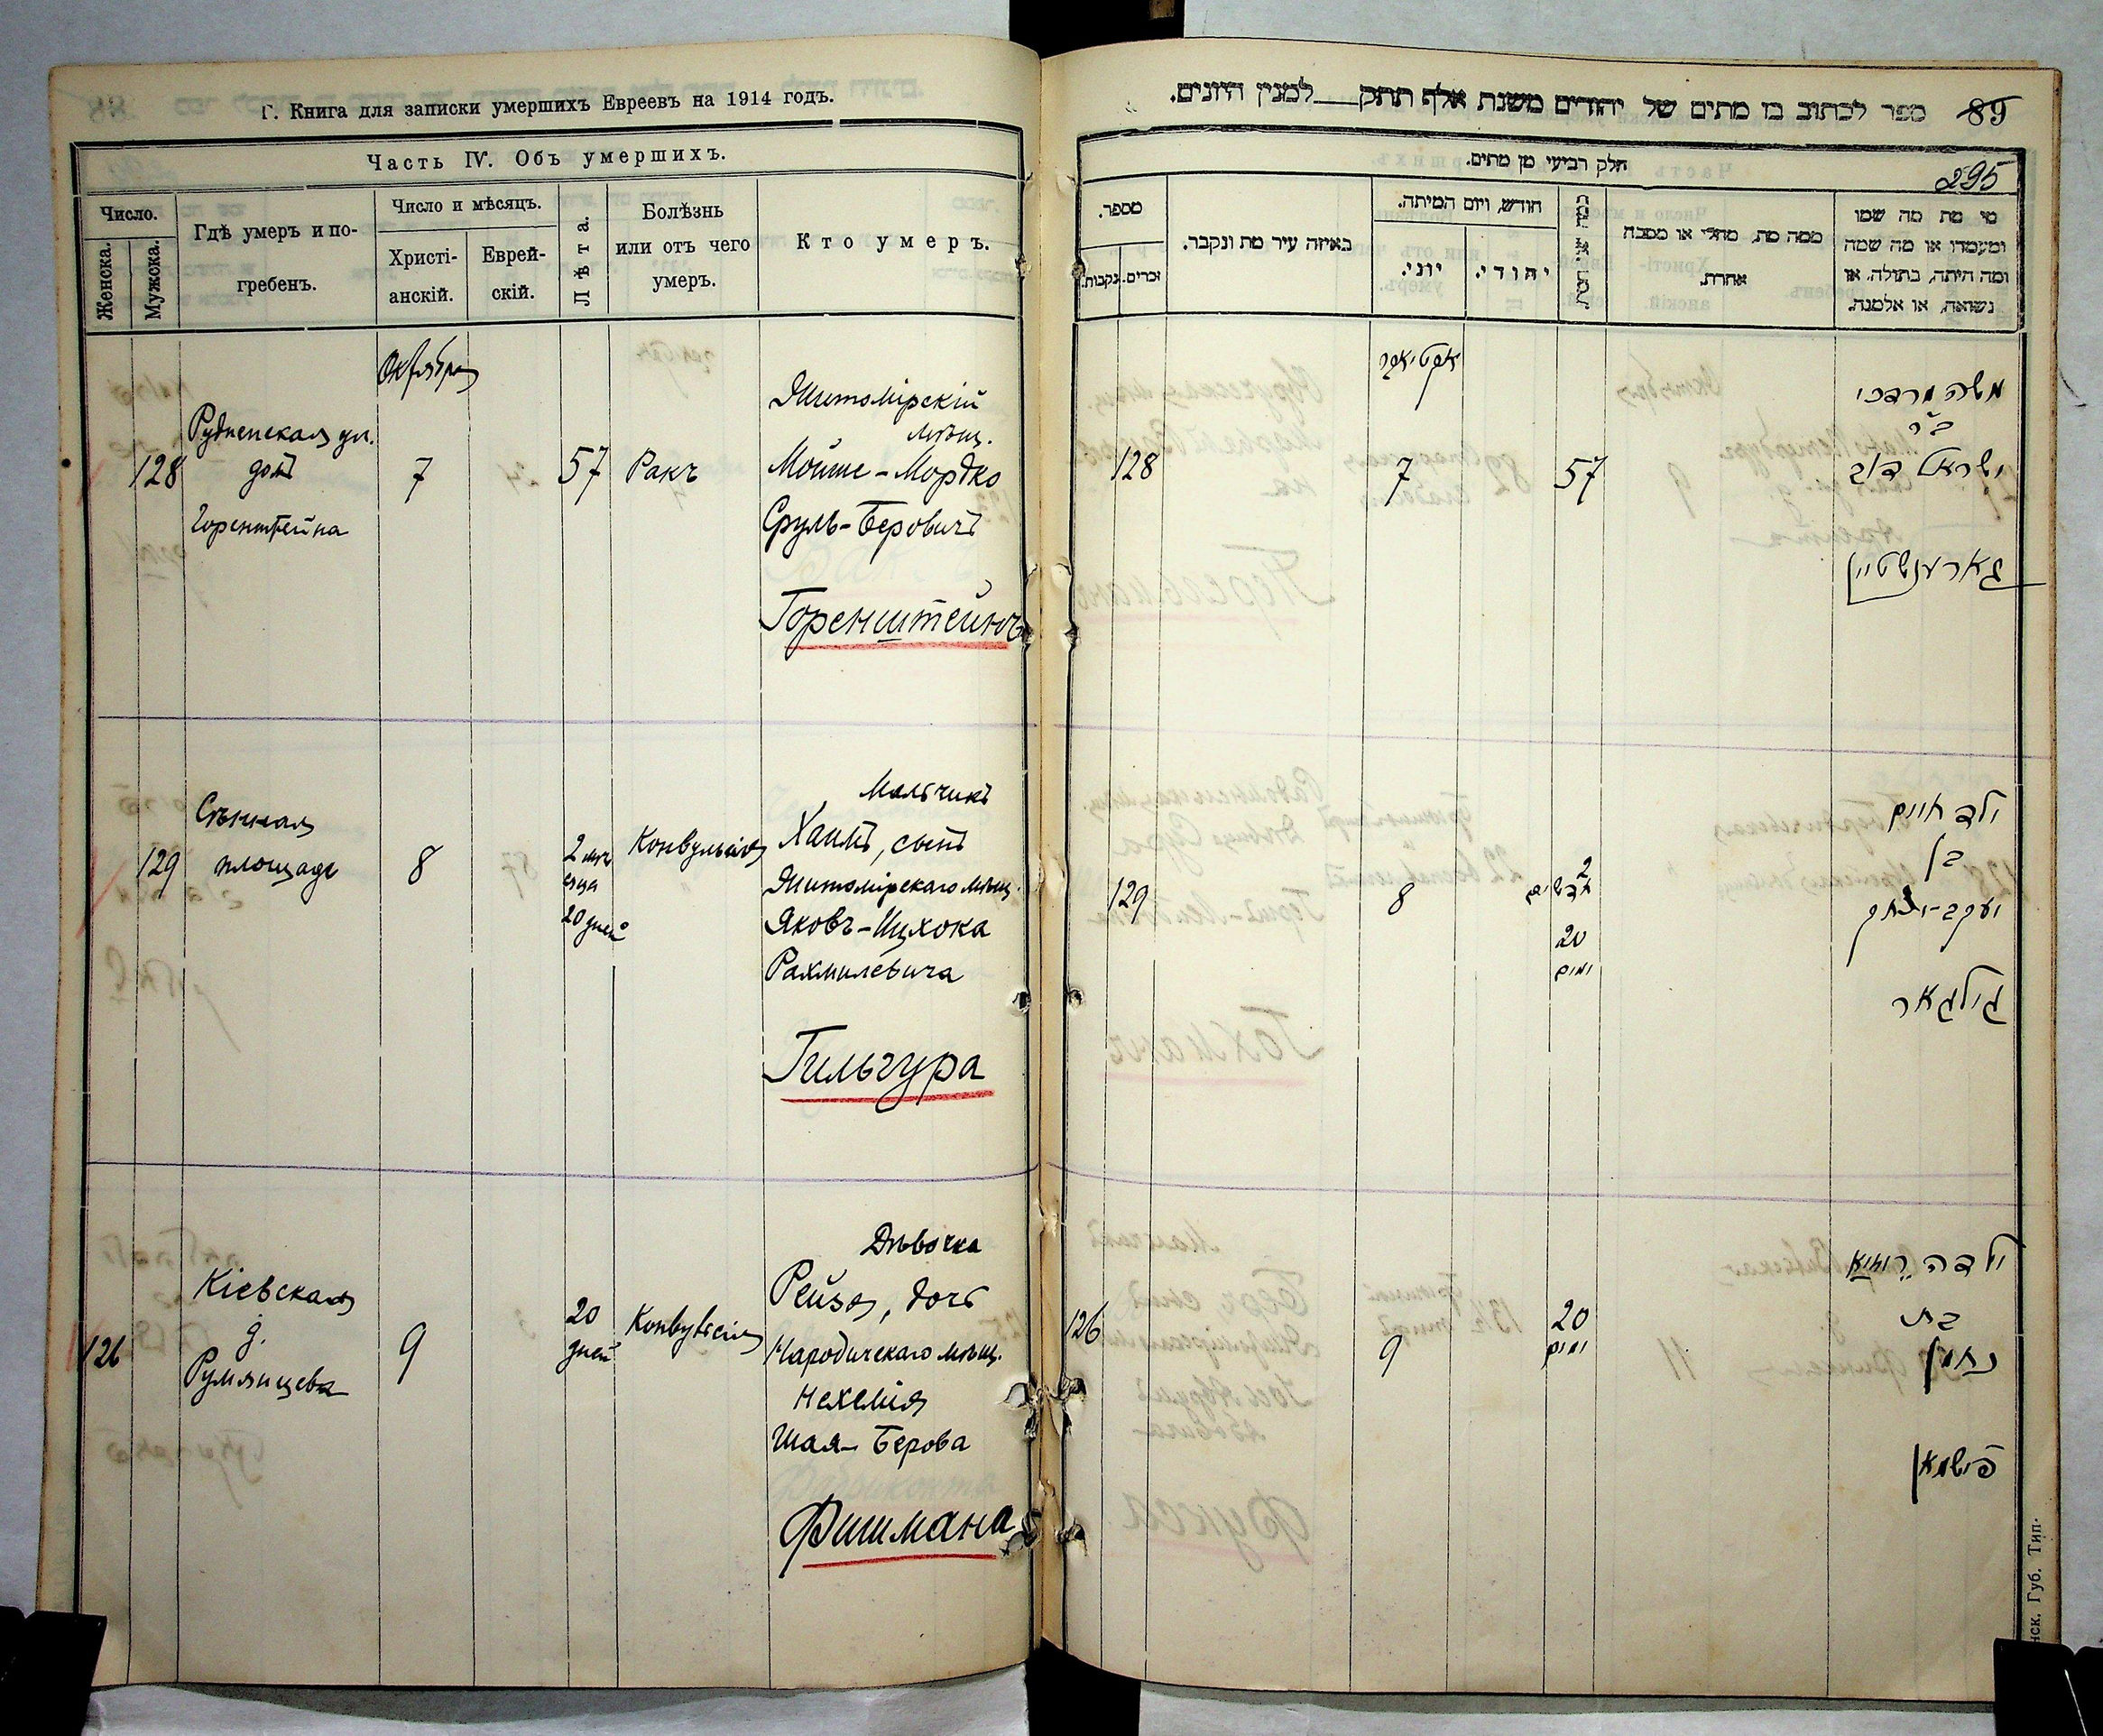 Г. Книга для записки умершихъ Евреевъ на 1914 годъ.
Часть IV. Объ умершихъ.
Число.
Женска.
Мужска.
Гдѣ умеръ и по-
гребенъ.
Число и мѣсяцъ.
Христі-
анскій.
Еврей-
скій.
Лѣта.
Болѣзнь
или отъ чего
умеръ.
Кто умеръ.
Октября
128
Рудненская ул.
домъ
Горенштейна
7
57
Ракъ
Житомірскій
мѣщ.
Мойше-Мордко
Сруль-Беровичъ
Горенштейнъ
129
Сѣнная
площадь
8
2 мѣ
сяца
20 дней
Конвульсія
Мальчикъ
Хаимъ, сынъ
Житомірскаго мѣщ.
Яковъ-Ицхока
Рахмилевича
Гильгура
126
Кіевская
д.
Румянцева
9
20
дней
Конвульсія
Дѣвочка
Рейзя, дочь
Народичскаго мѣщ.
Нехемія
Шая-Берова
Фишмана
ספר לכתוב בו מתים של יהודים משנת אלף תתק למנין היונים.
89
חלק רביעי מן מתים.
295
מספר.
נקבות.
זכרים.
באיזה עיר מת ונקבר.
חודש, ויום המיתה.
יוני.
יהודי.
ממה מת, מחלי או מסבה
אחרת.
מי מת מה שמו
ומעמדו או מה שמה
ומה היתה, בתולה, או
נשואה, או אלמנה.
אקטיאבר
128
7
57
משה מרדכי
ב"ר
ישראל דוב
גארענשטיין
129
8
2
חדשים
20
ימים
ילד חיים
בן
יעקב-יצחק
גילגאר
126
9
20
ימים
ילדה רייזא
בת
פישמאן
нск. Губ. Тип.